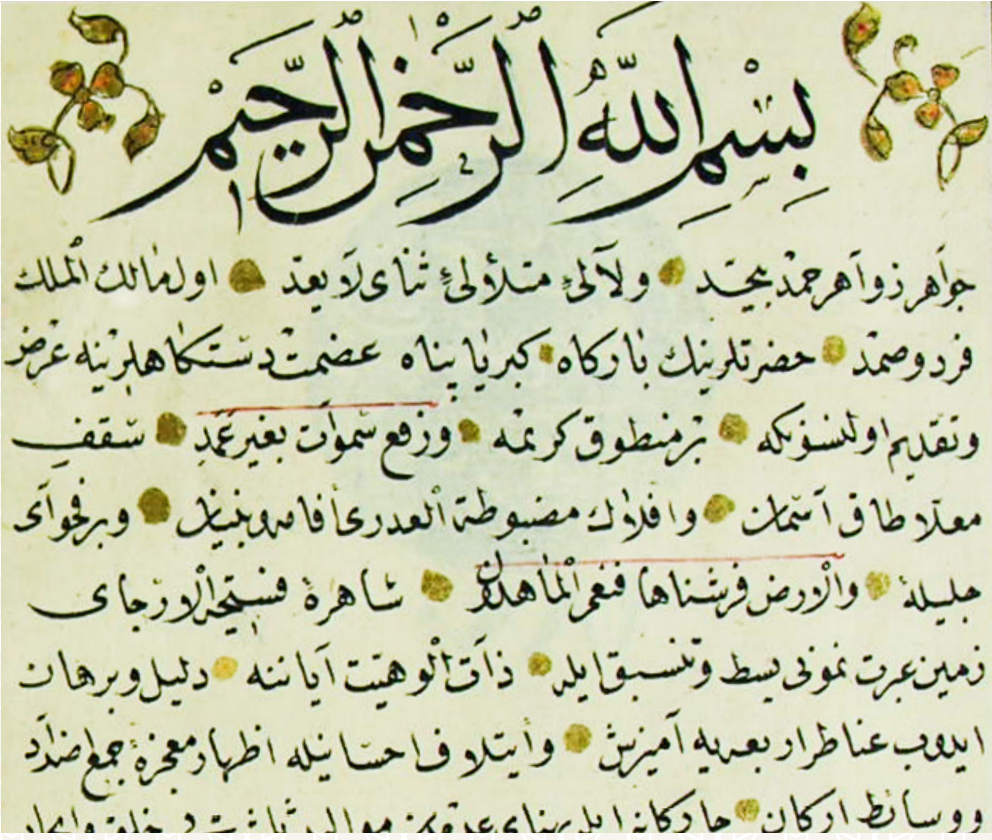 بِسْمِ اللّٰهِ الرَّحْمٰنِ الرَّحِيمِ
جواهر زواهر حمد بيحد ولآلئ متلألئ ثناى لا يعد اول مالك الملك
فرد و صمد حضرتلرينك باركاه كبريا پناه عضمت دستكاهلرينه عرض
وتقديم اولنسونكه بر منطوق كريمه ورفع سموات بغير عمد سقف
معلا طاق آسمان وافلاك مضبوطة وبر فحواى
جليلة والارض فرشناها فنعم الماهدون شاهرة فسيحة الارجاى
زمين عبرت نمونى بسط وتنسيق ايله ذات الوهيت آياتنه دليل وبرهان
ايدوب عناصر اربعه يه آميزش وايتلاف احسانيله اظهار معجزة جمع اضداد
ووسائط اركان